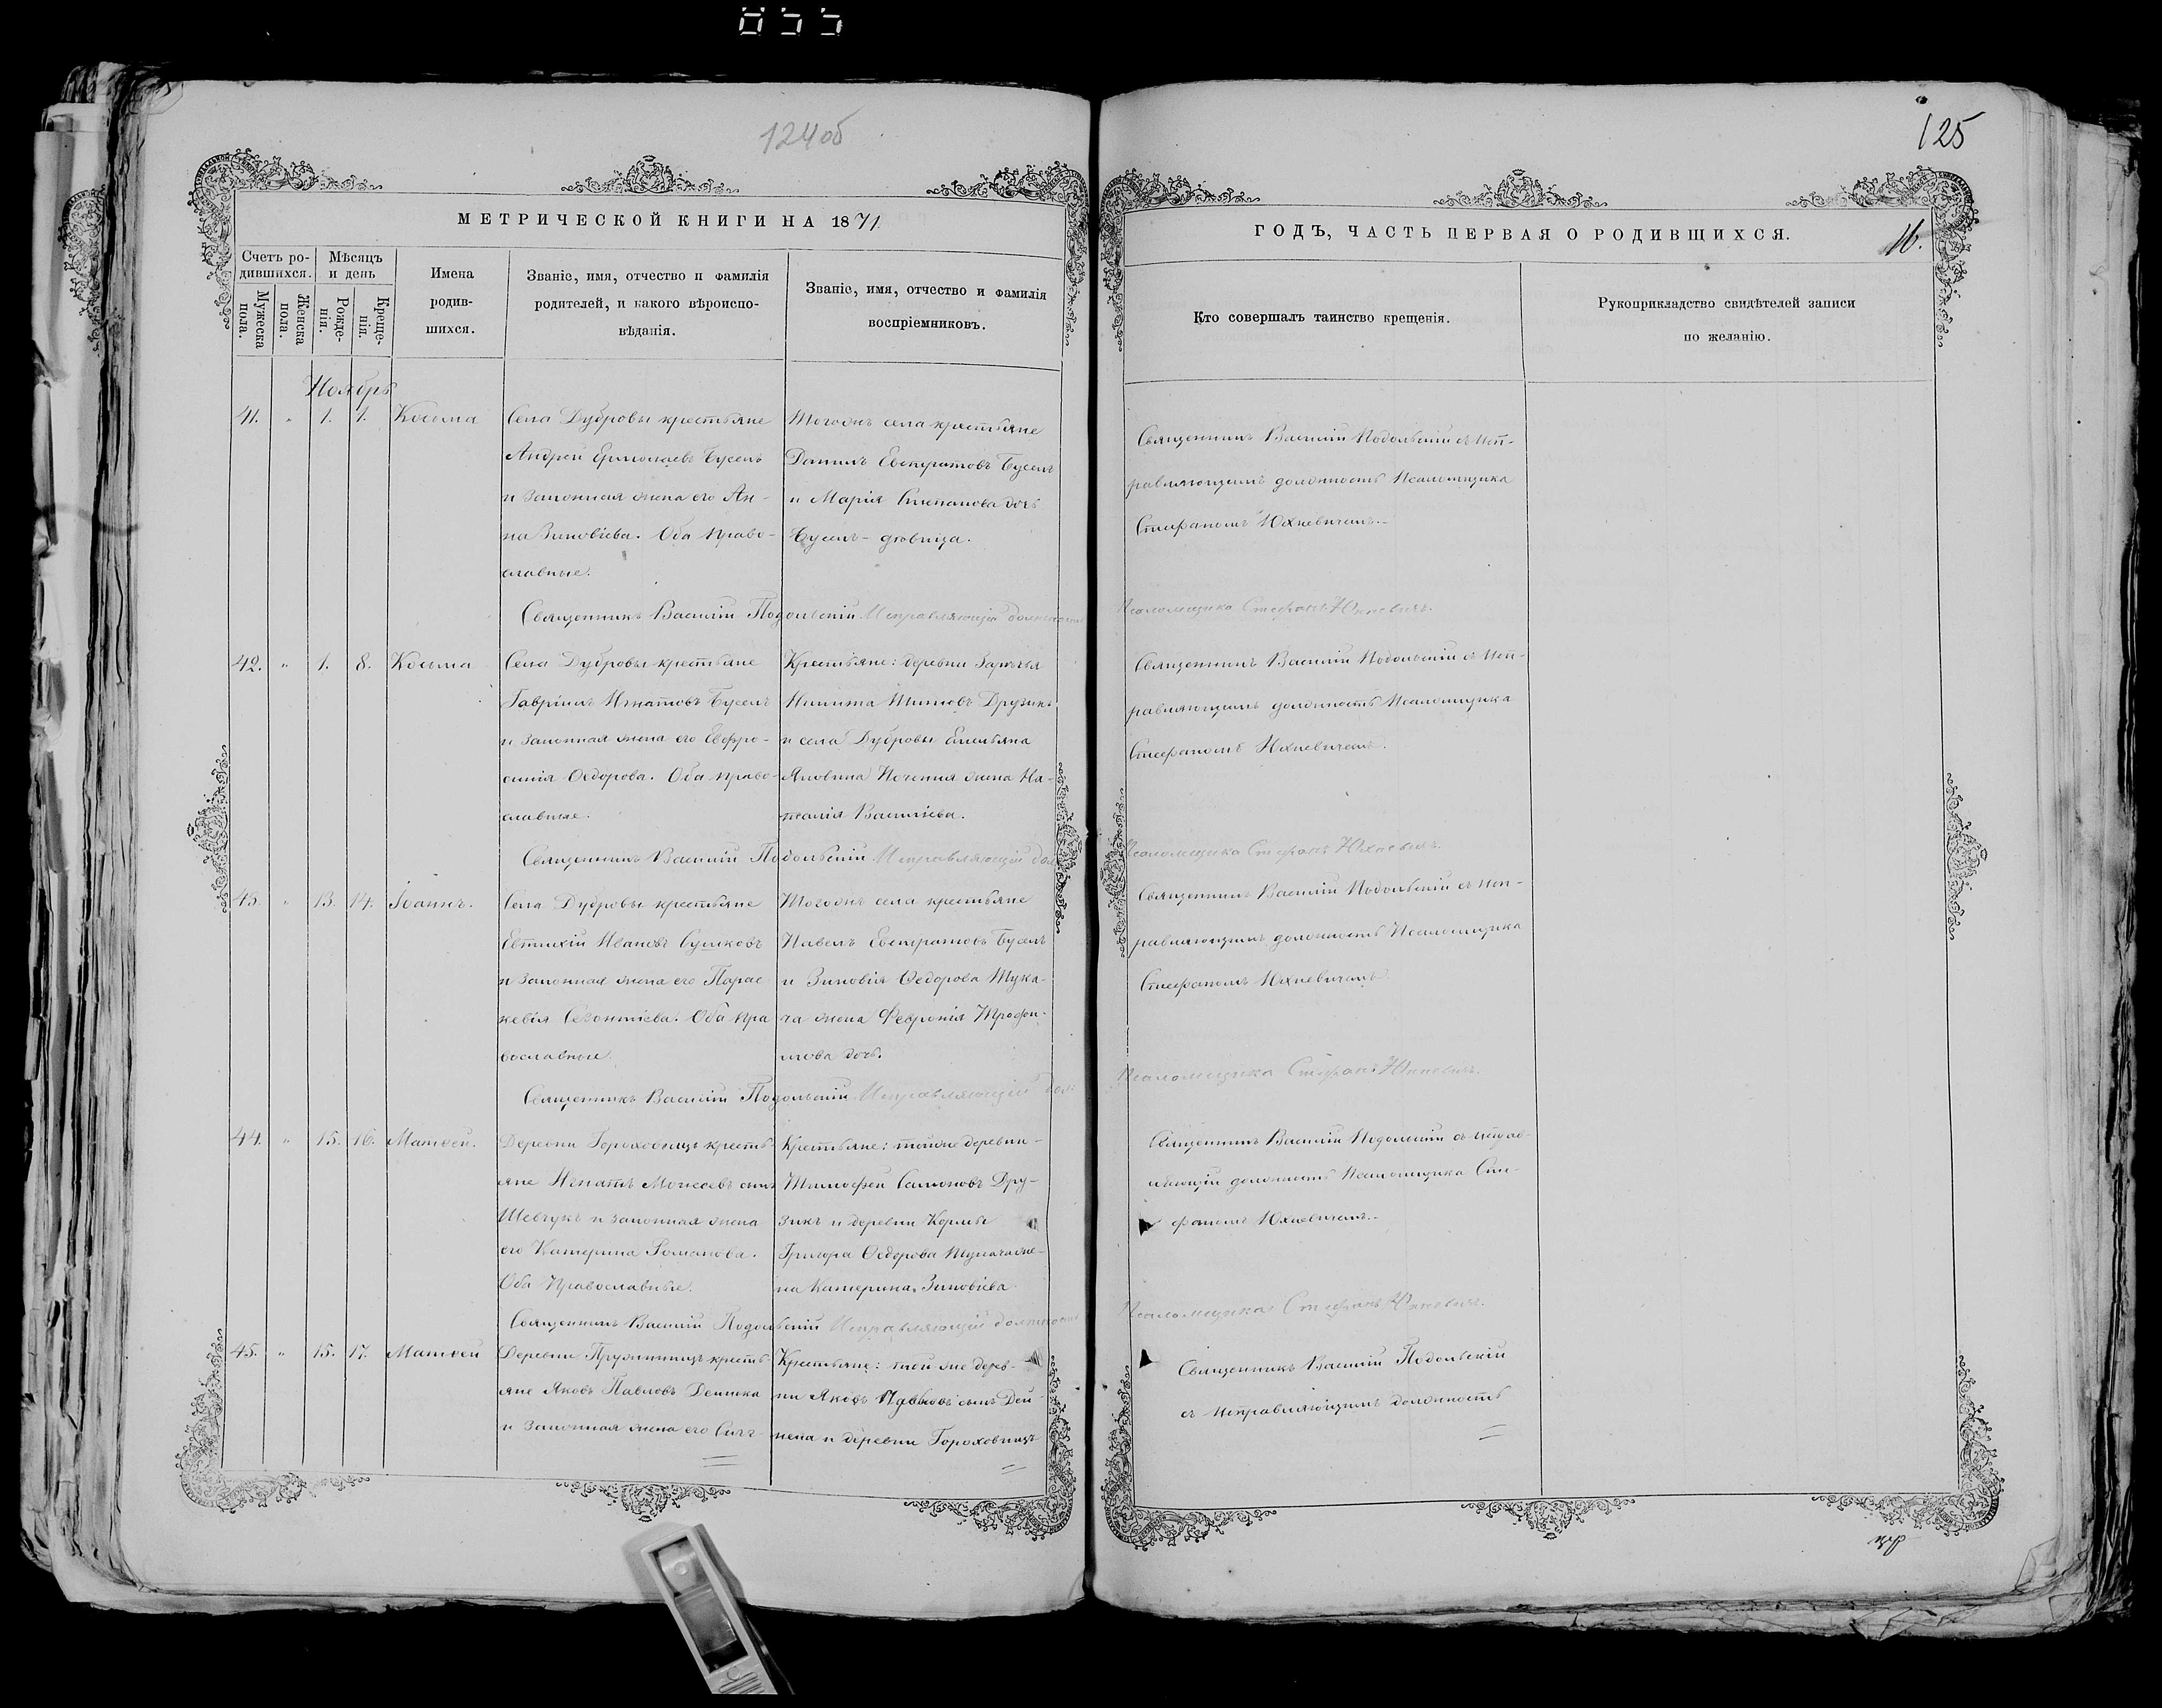 124об
МЕТРИЧЕСКОЙ КНИГИ НА 1871
Счетъ ро-
дившихся.
Мужеска пола.
Женска пола.
Мѣсяцъ
и день
Рожде-
нія.
Креще-
нія.
Имена
родив-
шихся.
Званіе, имя, отчество и фамилія
родителей, и какого вѣроиспо-
вѣданія.
Званіе, имя, отчество и фамилія
воспріемниковъ.
Ноябрь
41. " 1. 1. Косьма
Села Дубровы крестьяне
Андрей Ермолаевъ Буселъ
и законная жена его Ан-
на Зиновіева. Оба право-
славные.
Тогожъ села крестьяне
Даніилъ Евстратовъ Буселъ
и Марія Степанова дочь
Буселъ - дѣвица.
Священникъ Василій Подольскій Исправляющій должность
42. " 1. 8. Косьма
Села Дубровы крестьяне
Гавріилъ Игнатовъ Буселъ
и законная жена его Евфро-
синія Ѳедорова. Оба право-
славные.
Крестьяне: деревни Зарѣчья
Никита Титовъ Друзикъ
и села Дубровы Емельяна
жена На-
талія Василіева.
Священникъ Василій Подольскій Исправляющій дол
43. " 13. 14. Іоаннъ.
Села Дубровы крестьяне
Евтихій Ивановъ Сушковъ
и законная жена его Парас
кевія Леонтіева. Оба пра
вославные.
Тогожъ села крестьяне
Павелъ Евстратовъ Буселъ
и Зиновія Ѳедорова Тука-
ча жена Февронія Трофи-
мова дочь.
Священникъ Василій Подольскій Исправляющій дол
44. " 15. 16. Матѳей.
Деревни Гороховищъ кресть-
яне Игнатъ Моисеевъ сынъ
Шевчукъ и законная жена
его Катерина Романова.
Оба Православные.
Крестьяне: тойже деревни -
Тимофей Самоновъ Дру-
зикъ и деревни Кормы
Григора Ѳедорова Тукача же-
на Катерина Зиновіева
Священникъ Василій Подольскій Исправляющій должность
45. " 15. 17. Матѳей
Деревни Пружинищъ кресть
яне Яковъ Павловъ Дешка
и законная жена его
Крестьяне: той же дерев-
ни Яковъ сынъ Дей
и деревни Гороховищъ
125
ГОДЪ, ЧАСТЬ ПЕРВАЯ О РОДИВШИХСЯ.
16.
Кто совершалъ таинство крещенія.
Рукоприкладство свидѣтелей записи
по желанію.
Священникъ Василій Подольскій съ исп-
равляющимъ должность Псаломщика
Стефаномъ Юхневичемъ.-
Псаломщика Стефанъ Юхневичъ.
Священникъ Василій Подольскій съ исп-
равляющимъ должность Псаломщика
Стефаномъ Юхневичемъ.
Псаломщика Стефанъ Юхневичъ.
Священникъ Василій Подольскій съ исп-
равляющимъ должность Псаломщика
Стефаномъ Юхневичемъ
Псаломщика Стефанъ Юхневичъ.
Священникъ Василій Подольскій съ исправ-
ляющій должность Псаломщика Сте-
фаномъ Юхневичемъ.-
Псаломщика Стефанъ Юхневичъ.
Священникъ Василій Подольскій
съ исправляющимъ должность